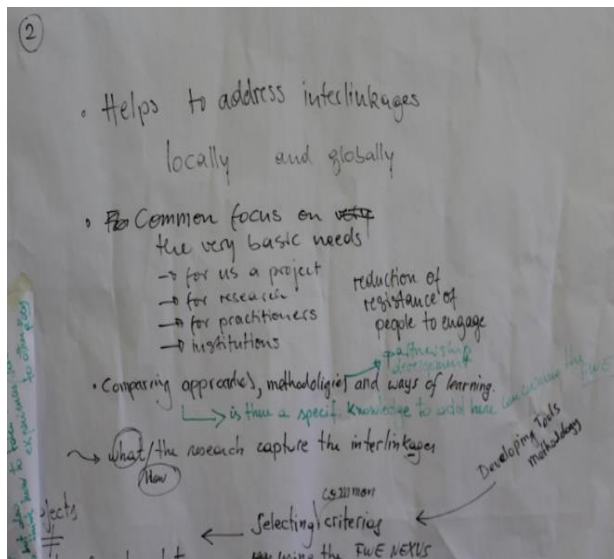 2
• Helps to address interlinkages
locally and globally
• Common focus on very
the very basic needs
→ for us a project
→ for research
→ for practitioners
→ institutions
reduction of
resistance of
people to engage
partnership
development
• Comparing approaches, methodologies and ways of learning.
→ is there a specific knowledge to add here concerning the FWE
→ what/the research capture the interlinkages
How
Developing Tools
methodology
common
← Selecting criteria ←
the FWE NEXUS